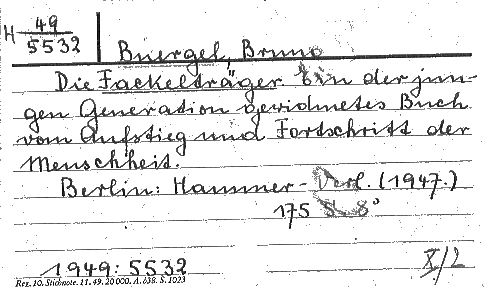 H 49
5532
Buergel, Bruno
Die Fackelträger. Ein der jun-
gen Generation gewidmetes Buch
vom Aufstieg und Fortschritt der
Menschheit.
Berlin: Hammer-Verl. (1947.)
175 S. 8°
1949: 5532
X/2
Rez. 10. Stichnote. 11. 49. 20 000. A. 638. S. 1023